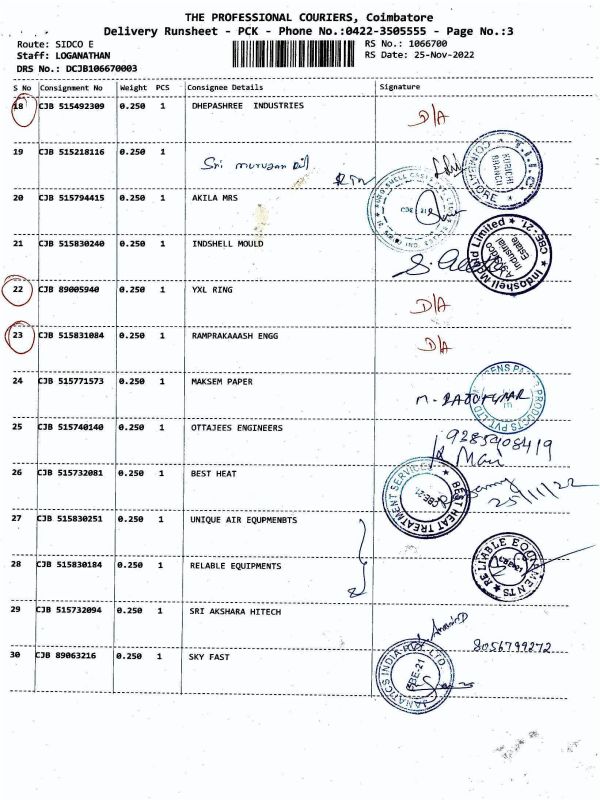 THE PROFESSIONAL COURIERS, Coimbatore
Delivery Runsheet - PCK - Phone No.:0422-3505555 - Page No.:3
Route: SIDCO E RS No.: 1066700
Staff: LOGANATHAN RS Date: 25-Nov-2022
DRS No.: DCJB106670003
S No Consignment No Weight PCS Consignee Details Signature
18 CJB 515492309 0.250 1 DHEPASHREE INDUSTRIES D/A
19 CJB 515218116 0.250 1 Sri murugan
KURICHI BRANCH
20 CJB 515794415 0.250 1 AKILA MRS
21 CJB 515830240 0.250 1 INDSHELL MOULD
Indoshell Mould Limited CBE-21
Industrial Estate
22 CJB 89005940 0.250 1 YXL RING D/A
23 CJB 515831084 0.250 1 RAMPRAKAAASH ENGG D/A
24 CJB 515771573 0.250 1 MAKSEM PAPER
PRODUCTS PVT LTD
25 CJB 515740140 0.250 1 OTTAJEES ENGINEERS 9285908419
Mari
26 CJB 515732081 0.250 1 BEST HEAT
BEST HEAT TREATMENT SERVICES CBE-21 25/11/22
27 CJB 515830251 0.250 1 UNIQUE AIR EQUPMENBTS
28 CJB 515830184 0.250 1 RELABLE EQUIPMENTS
RELIABLE EQUIPMENTS CBE-21
29 CJB 515732094 0.250 1 SRI AKSHARA HITECH
8056799272
30 CJB 89063216 0.250 1 SKY FAST
JANATICS INDIA PVT. LTD CBE-21